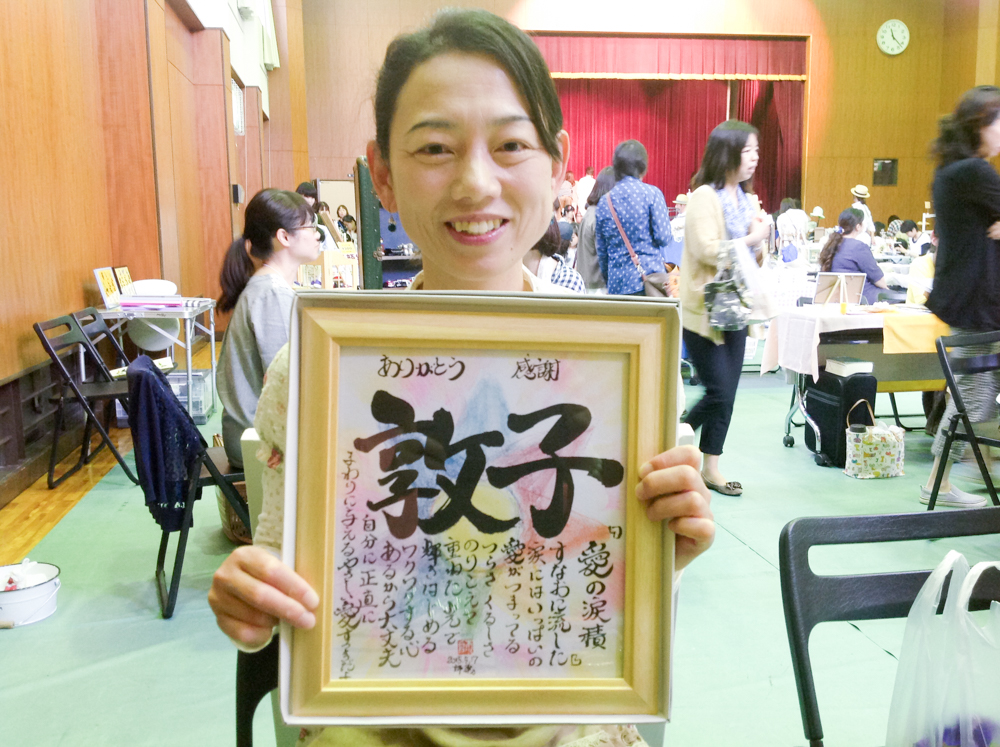 ありがとう 感謝
敦子
「愛の涙積」
すなおに流した
涙にはいっぱいの
愛がつまってる
つらさくるしさ
のりこえて
重ねた光で
輝きはじめる
ワクワクする心
あるから大丈夫
自分に正直に
まわりに与えるやさしい愛すてきだよ